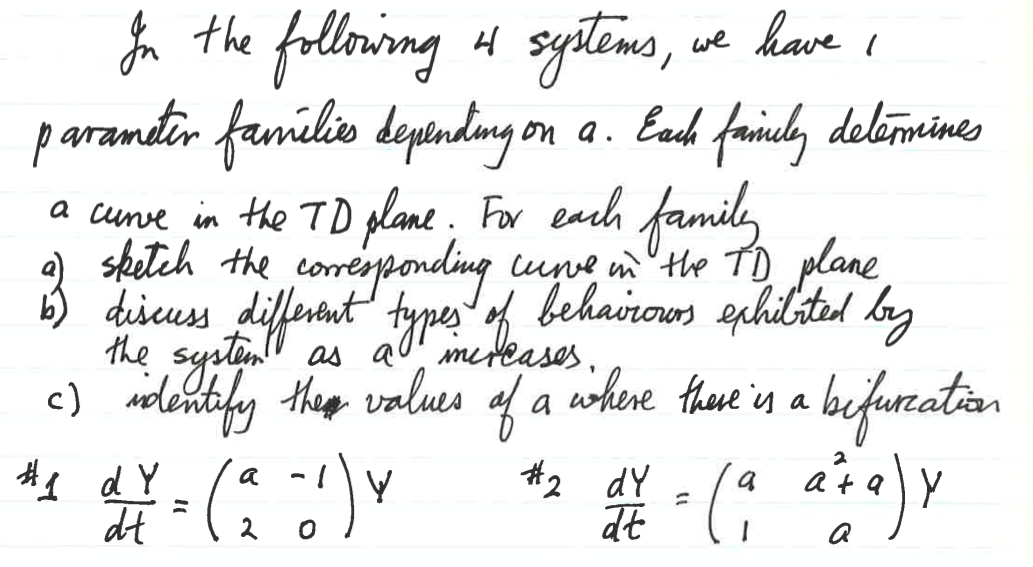 In the following 4 systems, we have 1
parameter families depending on a. Each family determines
a curve in the TD plane. For each family
a) sketch the corresponding curve in the TD plane
b) discuss different types of behaviours exhibited by
the system as a increases.
c) indentify the values of a where there is a bifurcation
#1 dY/dt = (a -1; 2 0) Y #2 dY/dt = (a a²+a; 1 a) Y